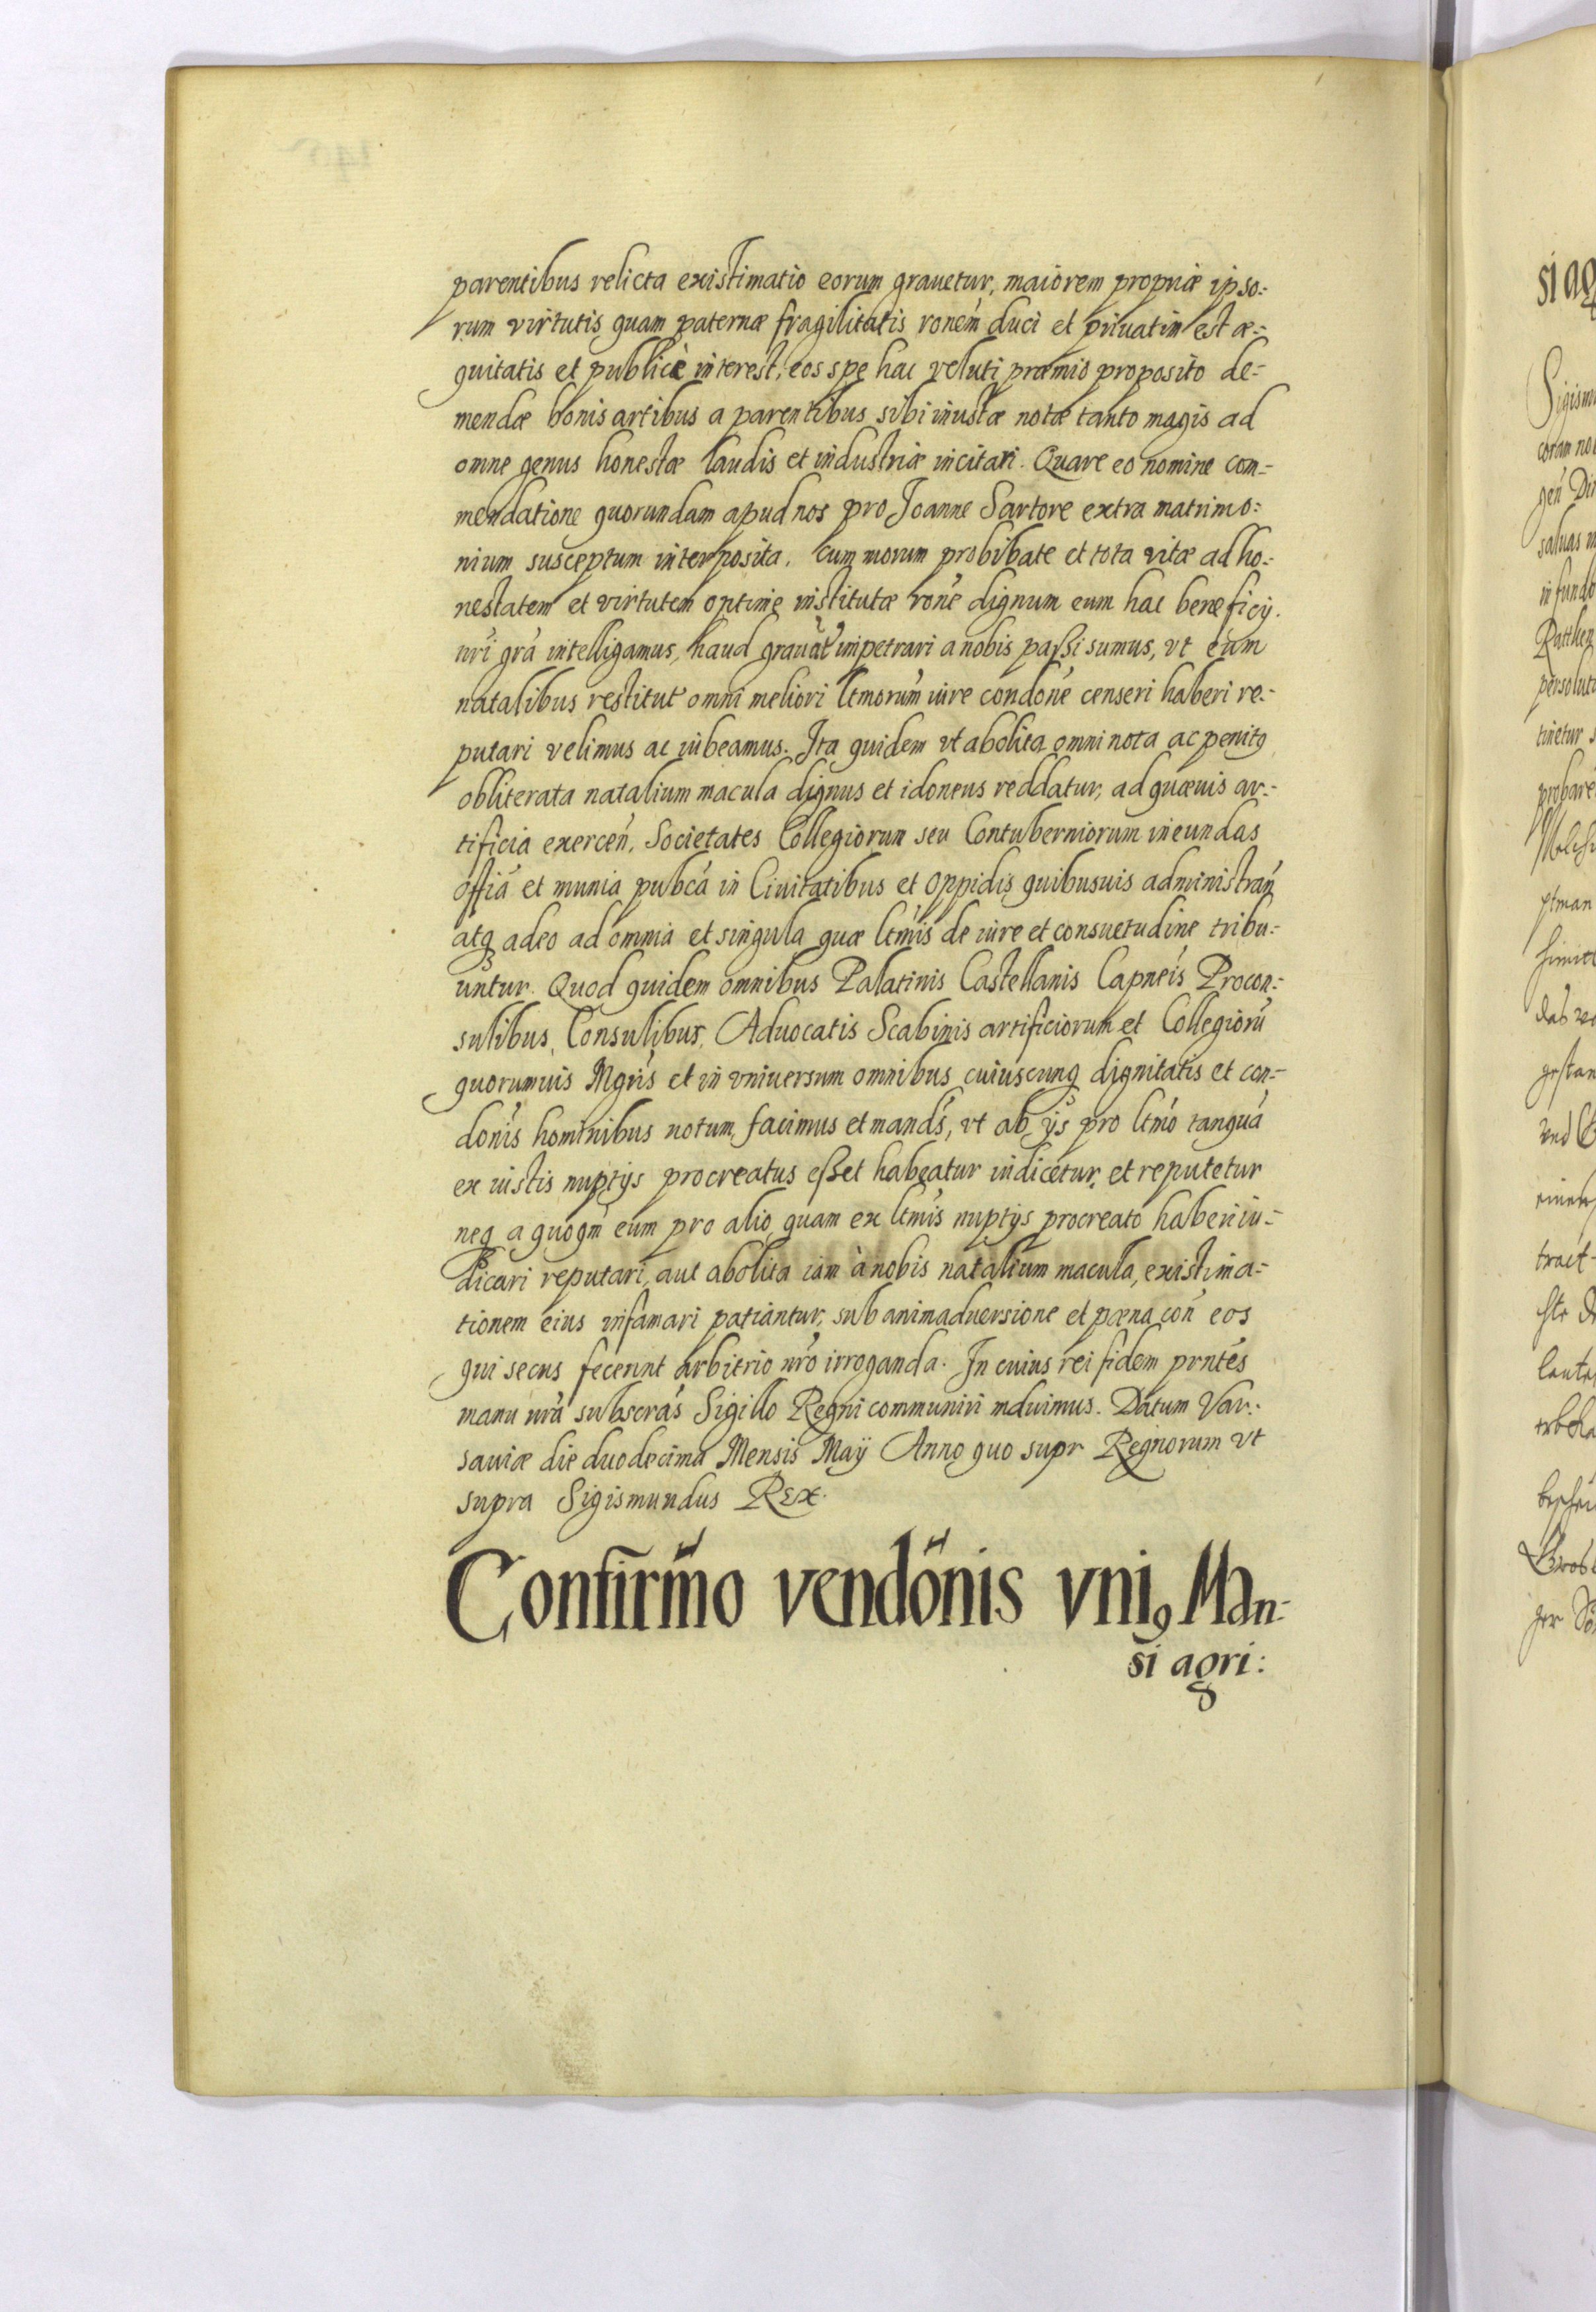 parentibus relicta existimatio eorum grauetur, maiorem propriæ ipso:
rum virtutis quam paternæ fragilitatis ronem duci et priuatim est æ-
quitatis et publicè interest, eos spe hac veluti præmio proposito de-
mendæ bonis artibus a parentibus sibi inustæ notæ tanto magis ad
omne genus honestæ laudis et industriæ incitari. Quare eo nomine com-
mendatione quorundam apud nos pro Joanne Sartore extra matrimo:
nium susceptum interposita, cum morum probibate et tota vitæ ad ho:
nestatem et virtutem optime institutæ rone dignum eum hac beneficij
nri gra intelligamus, haud grauat impetrari a nobis passi sumus, vt eum
natalibus restitut omni meliori ltmorum iure condone censeri haberi re-
putari velimus ac iubeamus. Ita quidem vt abolita omni nota ac penitq
obliterata natalium macula dignus et idoneus reddatur, ad quæuis ar-
tificia exercen, Societates Collegiorum seu Contuberniorum ineundas
offia et munia pubca in Ciuitatibus et oppidis quibusuis administran
atq adeo ad omnia et singula quæ ltmis de iure et consuetudine tribu-
untur. Quod quidem omnibus Palatinis Castellanis Capneis Procon-
sulibus, Consulibus, Aduocatis Scabinis artificiorum et Collegiorū
quorumuis Mgris et in vniuersum omnibus cuiuscunq dignitatis et con-
donis hominibus notum facimus et mands, vt ab ijs pro ltmo tanqua
ex iustis nuptijs procreatus esset habeatur iudicetur et reputetur
neq a quoqm eum pro alio quam ex ltmis nuptijs procreato haberi iu-
dicari reputari, aut abolita iam à nobis natalium macula, existima-
tionem eius infamari patiantur, sub animaduersione et pæna con eos
qui secus fecerint arbitrio nro irroganda. In cuius rei fidem prntes
manu nra subscras Sigillo Regni communiri mduimus. Datum Var:
sauiæ die duodecima Mensis Maij Anno quo supr Regnorum vt
supra Sigismundus Rex.
Confirmo vendonis vniq Man-
si agri: